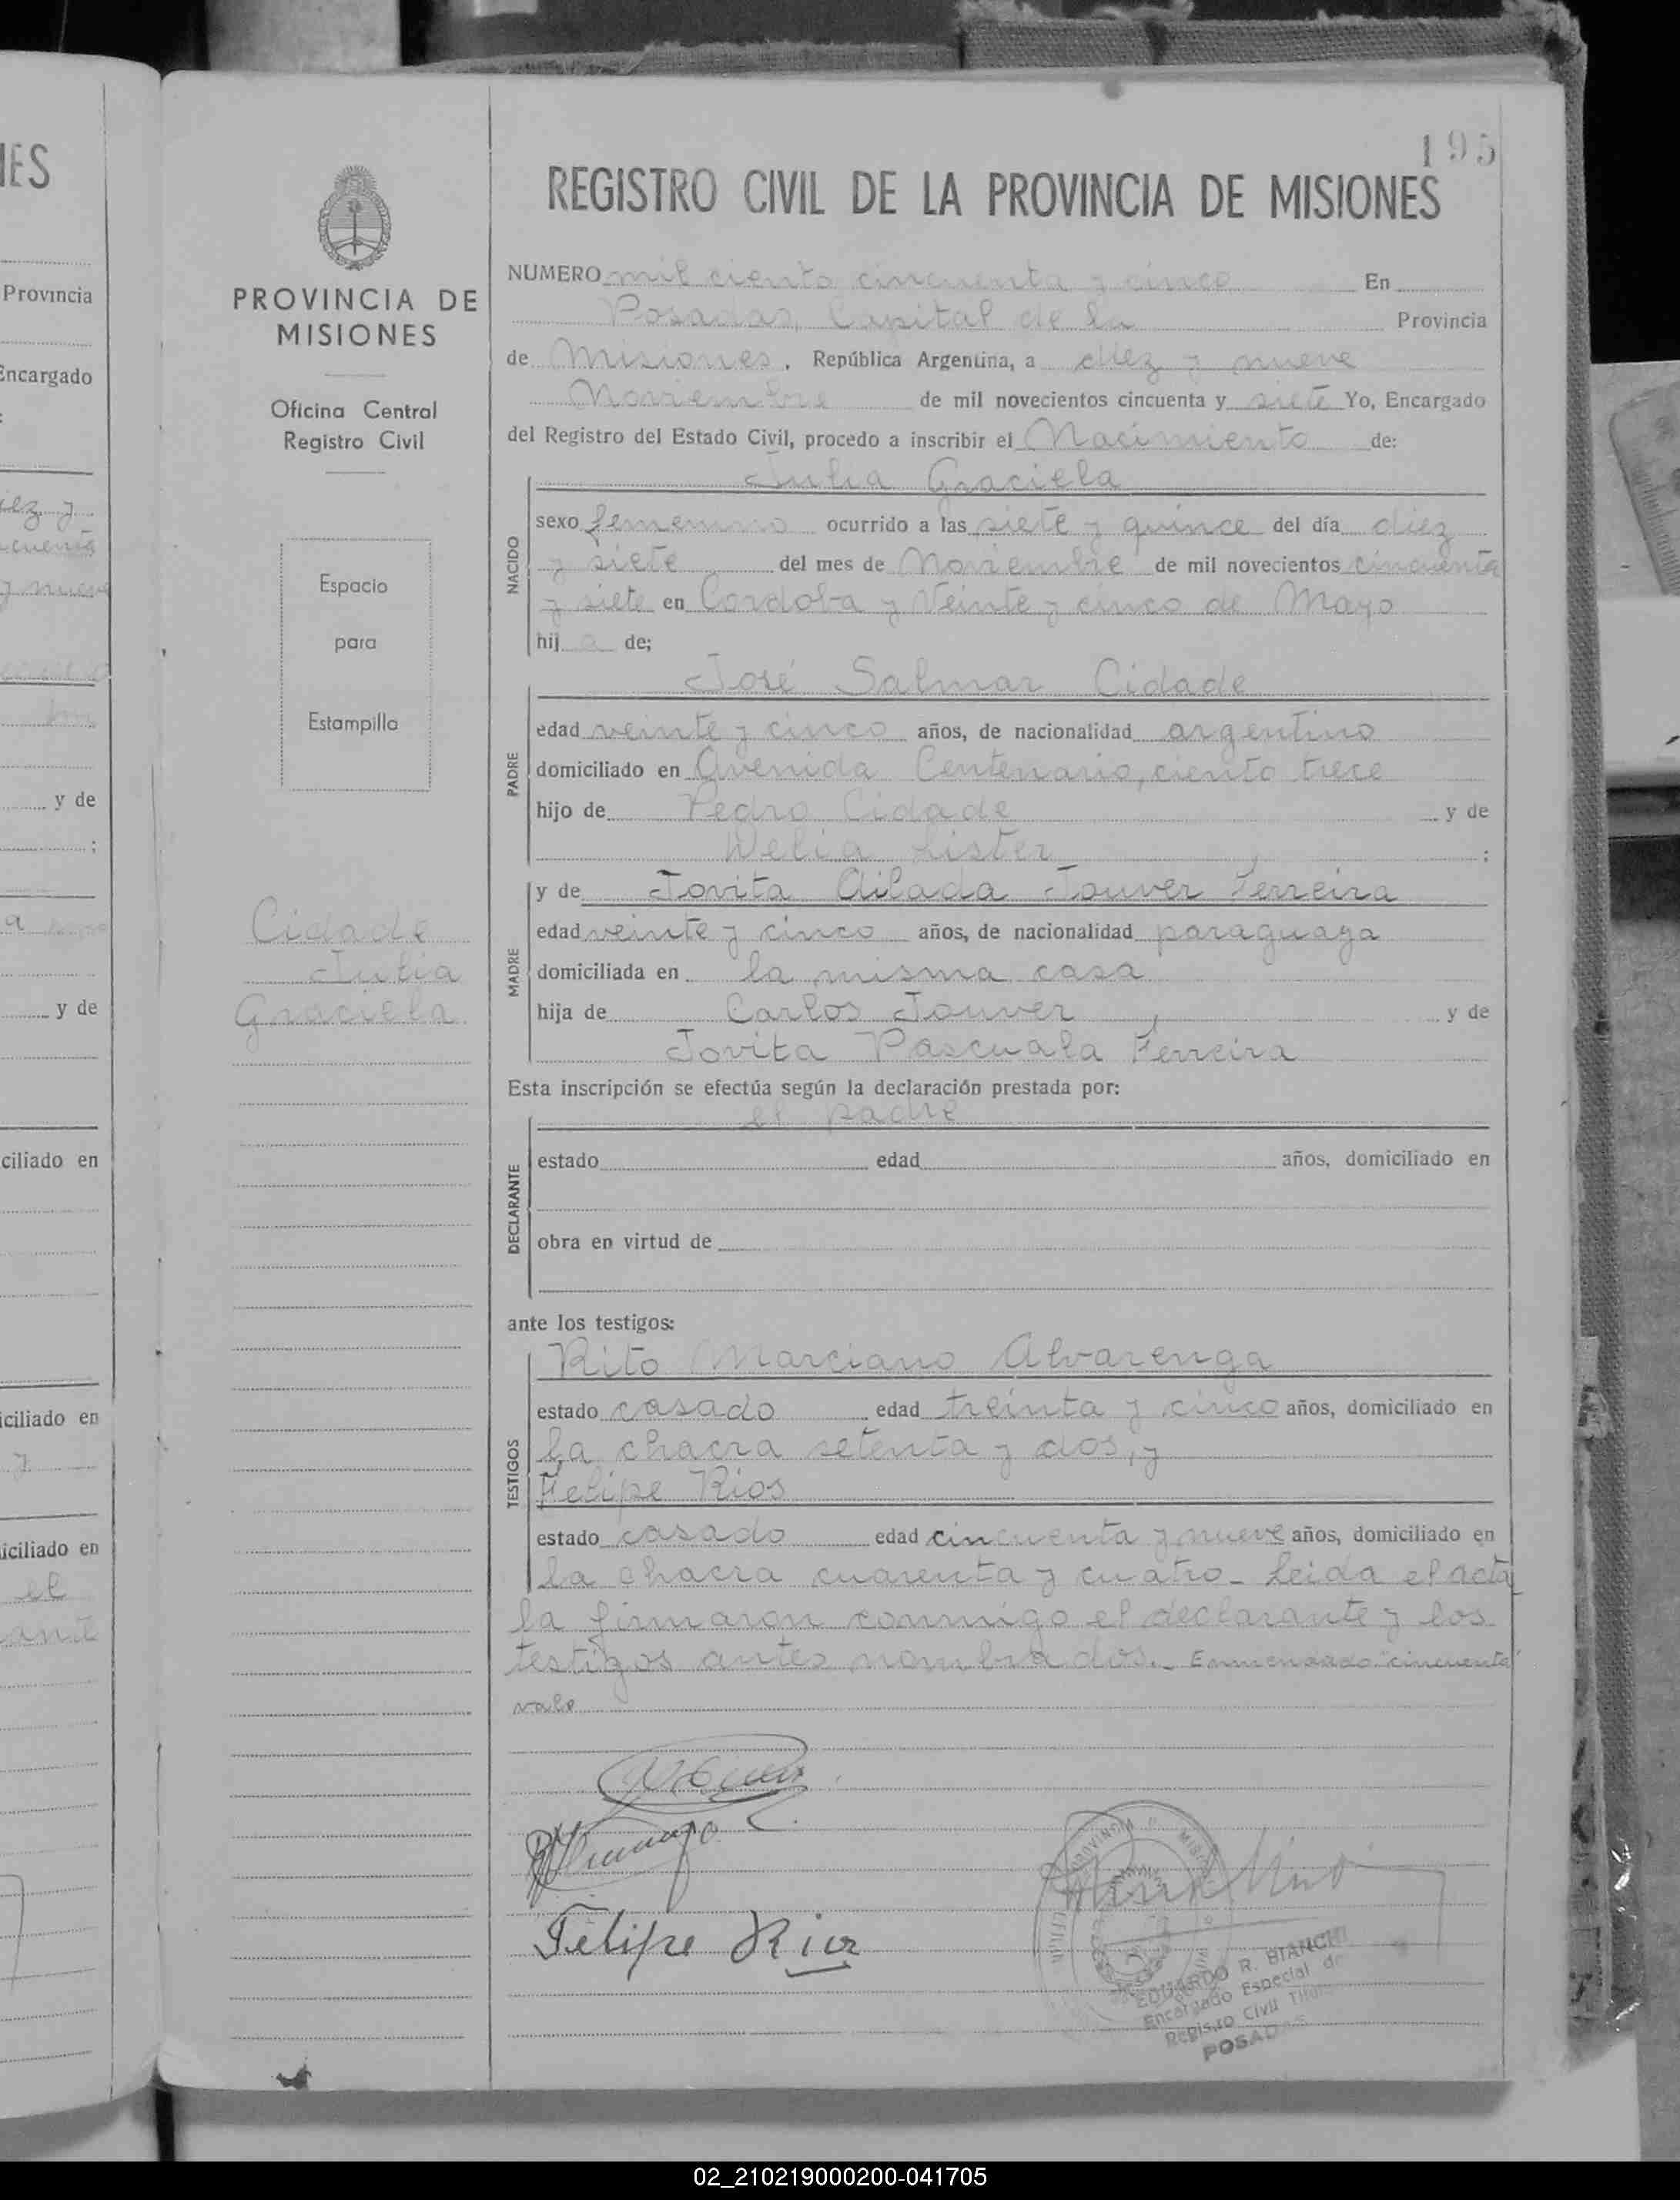 195
REGISTRO CIVIL DE LA PROVINCIA DE MISIONES
PROVINCIA DE
MISIONES
Oficina Central
Registro Civil
Espacio
para
Estampilla
Cidade
Julia
Graciela
NUMERO mil ciento cincuenta y cinco En
Posadas, Capital de la Provincia
de Misiones, República Argentina, a diez y nueve
Noviembre de mil novecientos cincuenta y siete Yo, Encargado
del Registro del Estado Civil, procedo a inscribir el Nacimiento de:
NACIDO
Julia Graciela
sexo femenino ocurrido a las siete y quince del día diez
y siete del mes de Noviembre de mil novecientos cincuenta
y siete en Cordoba y Veinte y cinco de Mayo
hij a de;
PADRE
José Salmar Cidade
edad veinte y cinco años, de nacionalidad argentino
domiciliado en Avenida Centenario, ciento trece
hijo de Pedro Cidade y de
Lister ;
MADRE
y de Jovita Jouver Ferreira
edad veinte y cinco años, de nacionalidad paraguaya
domiciliada en la misma casa
hija de Carlos Jouver, y de
Jovita Pascuala Ferreira
Esta inscripción se efectúa según la declaración prestada por:
DECLARANTE
el padre
estado edad años, domiciliado en
obra en virtud de
ante los testigos:
TESTIGOS
Rito Marciano Alvarenga
estado casado edad treinta y cinco años, domiciliado en
la chacra setenta y dos, y
Felipe Rios
estado casado edad cincuenta y nueve años, domiciliado en
la chacra cuarenta y cuatro_ Leida el acta
la firmaron conmigo el declarante y los
testigos antes nombrados._ Enmendado "cincuenta"
vale
Felipe Rios
EDUARDO R. BIANCHI
Encargado Especial de
Registro Civil
POSADAS
Provincia
Encargado
y de
y de
ciliado en
iciliado en
iciliado en
02_210219000200-041705